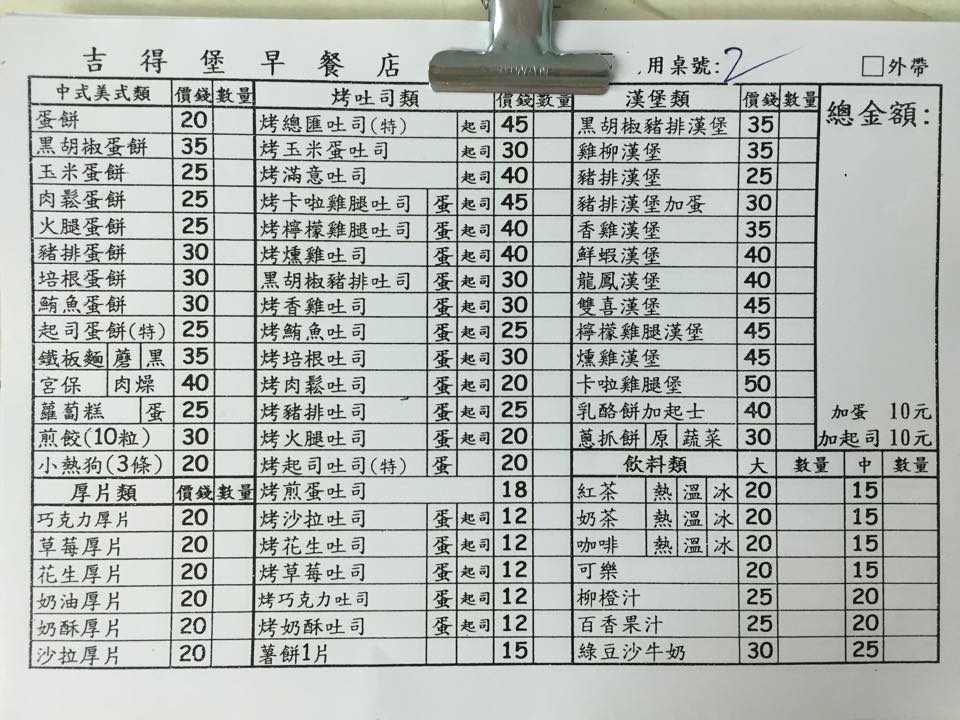 吉得堡早餐店 用桌號:2 □外帶
中式美式類 價錢 數量
蛋餅 20
黑胡椒蛋餅 35
玉米蛋餅 25
肉鬆蛋餅 25
火腿蛋餅 25
豬排蛋餅 30
培根蛋餅 30
鮪魚蛋餅 30
起司蛋餅(特) 25
鐵板麵 蘑 黑 35
宮保 肉燥 40
蘿蔔糕 蛋 25
煎餃(10粒) 30
小熱狗(3條) 20
厚片類 價錢 數量
巧克力厚片 20
草莓厚片 20
花生厚片 20
奶油厚片 20
奶酥厚片 20
沙拉厚片 20
烤吐司類 價錢 數量
烤總匯吐司(特) 起司 45
烤玉米蛋吐司 起司 30
烤滿意吐司 起司 40
烤卡啦雞腿吐司 蛋 起司 45
烤檸檬雞腿吐司 蛋 起司 40
烤燻雞吐司 蛋 起司 40
黑胡椒豬排吐司 蛋 起司 30
烤香雞吐司 蛋 起司 30
烤鮪魚吐司 蛋 起司 25
烤培根吐司 蛋 起司 30
烤肉鬆吐司 蛋 起司 20
烤豬排吐司 蛋 起司 25
烤火腿吐司 蛋 起司 20
烤起司吐司(特) 蛋 20
烤煎蛋吐司 18
烤沙拉吐司 蛋 起司 12
烤花生吐司 蛋 起司 12
烤草莓吐司 蛋 起司 12
烤巧克力吐司 蛋 起司 12
烤奶酥吐司 蛋 起司 12
薯餅1片 15
漢堡類 價錢 數量
黑胡椒豬排漢堡 35
雞柳漢堡 35
豬排漢堡 25
豬排漢堡加蛋 30
香雞漢堡 35
鮮蝦漢堡 40
龍鳳漢堡 40
雙喜漢堡 45
檸檬雞腿漢堡 45
燻雞漢堡 45
卡啦雞腿堡 50
乳酪餅加起士 40
蔥抓餅 原 蔬菜 30
總金額:
加蛋 10元
加起司 10元
飲料類 大 數量 中 數量
紅茶 熱 溫 冰 20 15
奶茶 熱 溫 冰 20 15
咖啡 熱 溫 冰 20 15
可樂 20 15
柳橙汁 25 20
百香果汁 25 20
綠豆沙牛奶 30 25